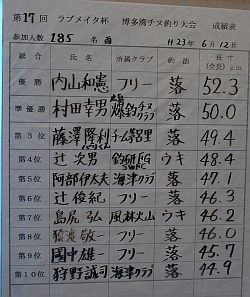 第17回 ラブメイタ杯 博多湾チヌ釣り大会 成績表
参加人数 185 名 H23年6月12日
総合 氏名 所属クラブ 釣法 長寸(cm)
優勝 内山和憲 フリー 落 52.3
準優勝 村田幸男 爆釣チヌクラブ 落 50.0
第3位 藤澤隆利 落 49.4
第4位 辻 次男 釣研FG ウキ 48.4
第5位 阿部伊太夫 海津クラブ 落 47.1
第6位 辻 俊紀 フリー 落 46.3
第7位 島尻 弘 風林火山 ウキ 46.2
第8位 敬一 フリー 落 46.0
第9位 國中雄一 フリー 落 45.7
第10位 狩野誠司 海津クラブ 落 44.9